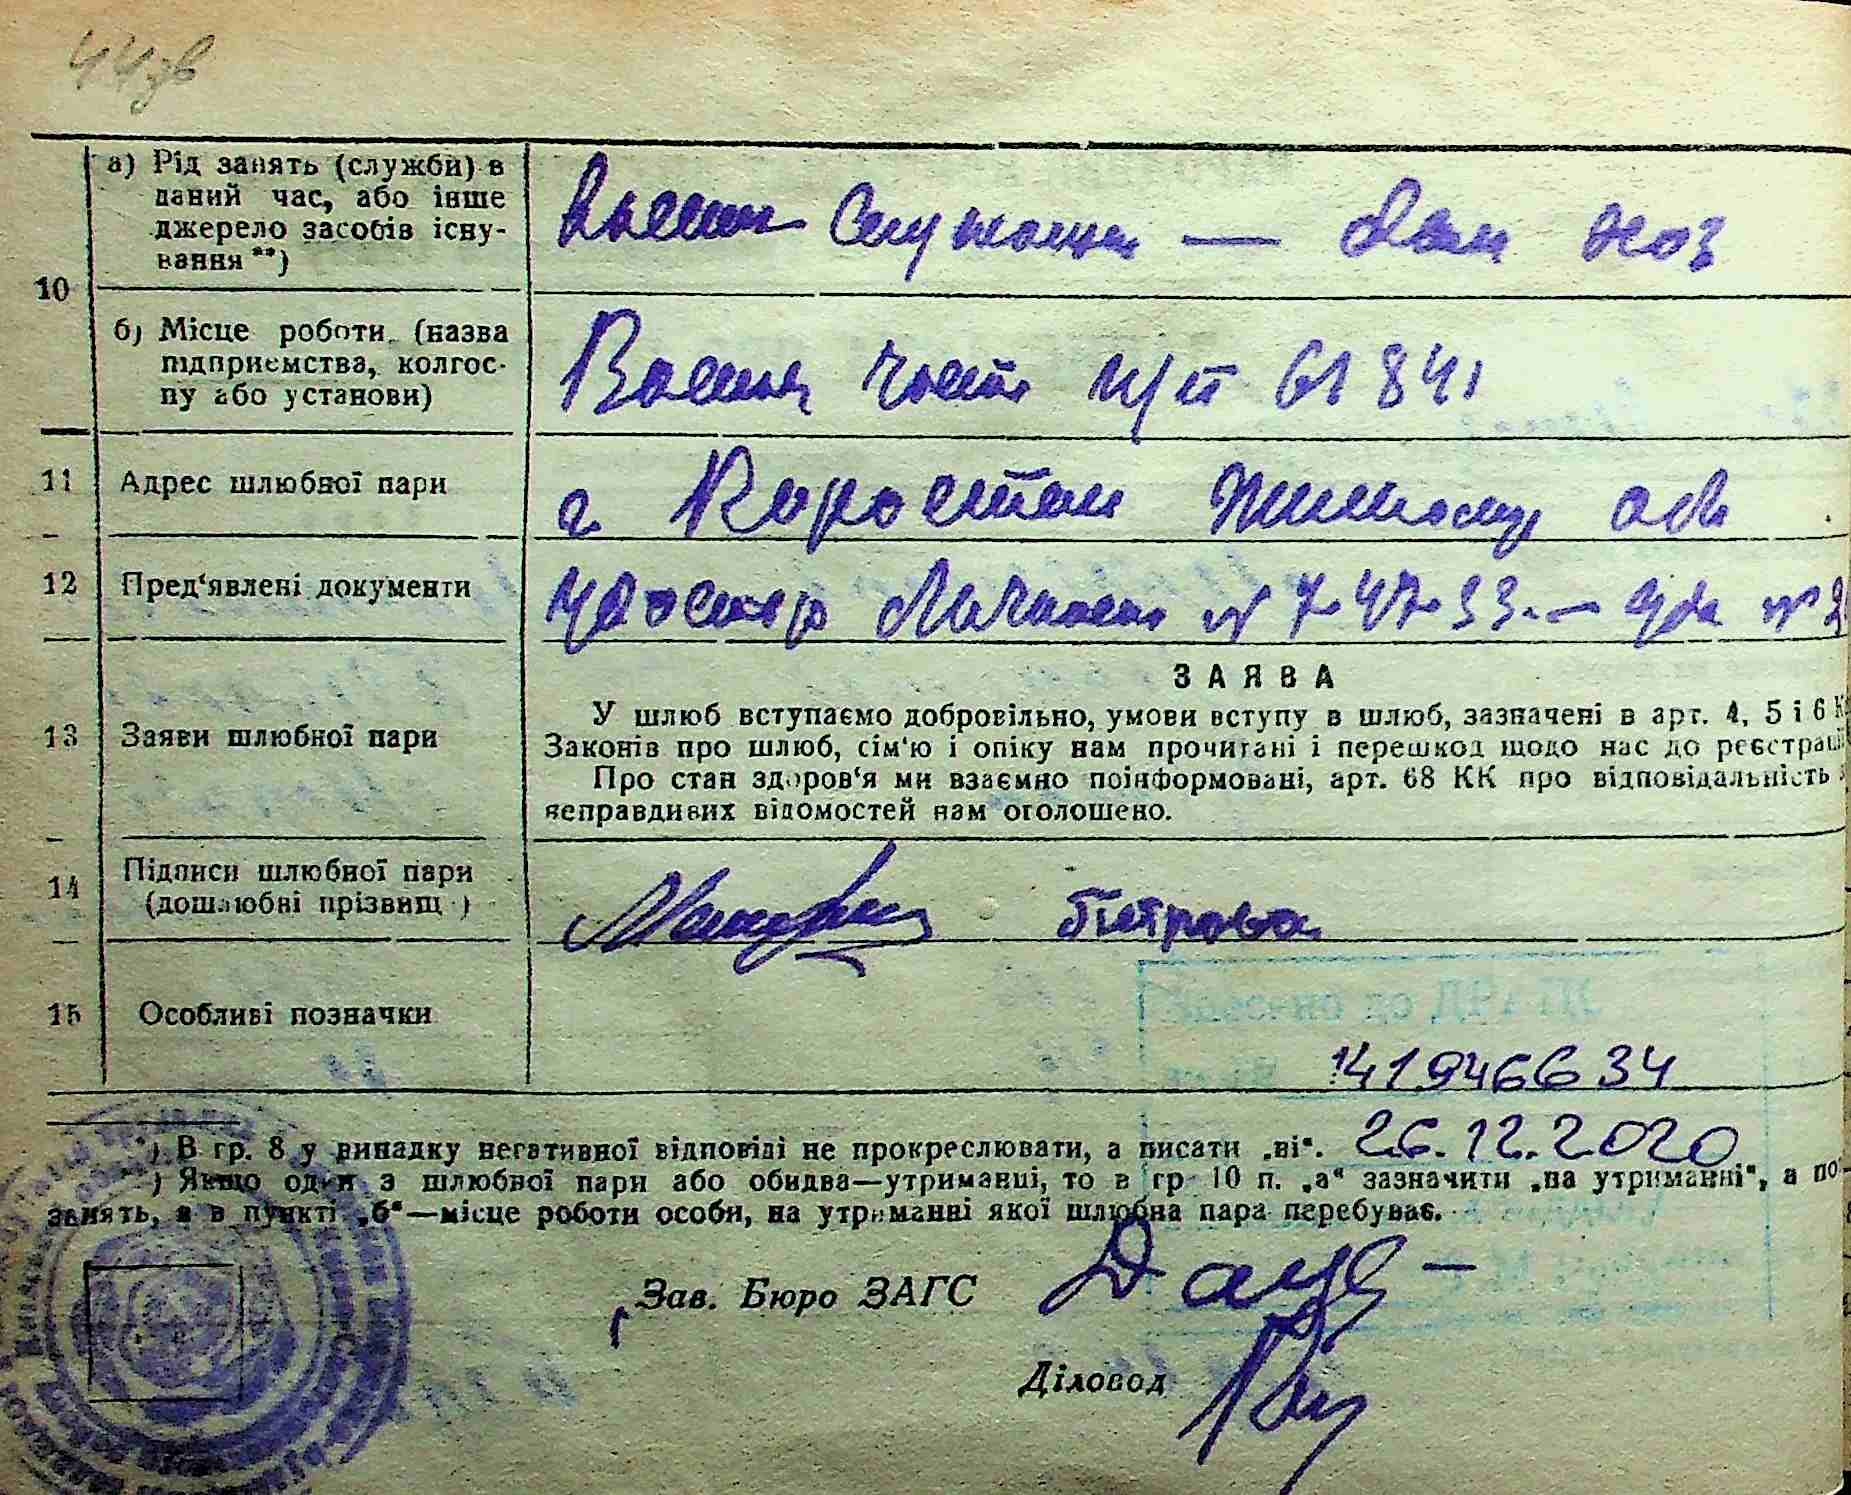 44зв
10
а) Рід занять (служби) в
даний час, або інше
джерело засобів існу-
вання **)
служащи — дом хоз
б) Місце роботи (назва
підприємства, колгос-
пу або установи)
Воення часть п/п 61841
11 Адрес шлюбної пари
г Коростень Житомир обл
12 Пред‘явлені документи
удостор Личности № 7-47-33. — № 2
13 Заяви шлюбної пари
ЗАЯВА
У шлюб вступаємо добровільно, умови вступу в шлюб, зазначені в арт. 4, 5 і 6 К
Законів про шлюб, сім‘ю і опіку нам прочитані і перешкод щодо нас до реєстрації
Про стан здоров‘я ми взаємно поінформовані, арт. 68 КК про відповідальність з
неправдивих відомостей нам оголошено.
14 Підписи шлюбної пари
(дошлюбні прізвищ )
Петрова
15 Особливі позначки
41946634
26.12.2020
*) В гр. 8 у випадку негативної відповіді не прокреслювати, а писати „ні“.
) Якщо один з шлюбної пари або обидва—утриманці, то в гр 10 п. „а“ зазначити „на утриманні“, а по
занять, а в пункті „б“—місце роботи особи, на утриманні якої шлюбна пара перебуває.
Зав. Бюро ЗАГС
Діловод